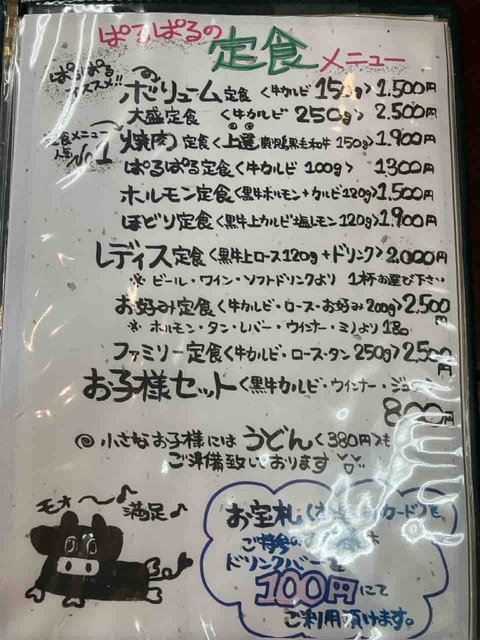 ぱるぱるの定食メニュー
ぱるぱるオススメ!!
ボリューム定食<牛カルビ 150g>1,500円
大盛定食<牛カルビ 250g>2,500円
定食メニュー人気No1
焼肉定食<上選 鹿児島黒毛和牛 150g>1,900円
ぱるぱる定食<牛カルビ 100g>1300円
ホルモン定食<黒牛ホルモン+カルビ120g>1,500円
ほどり定食<黒牛上カルビ塩レモン120g>1,900円
レディス定食<黒牛上ロース120g+ドリンク>2,000円
※ビール・ワイン・ソフトドリンクより 1杯お選び下さい
お好み定食<牛カルビ・ロース・お好み200g>2,500円
※ホルモン・タン・レバー・ウインナー・ミノより1品
ファミリー定食<牛カルビ・ロース・タン 250g>2,500円
お子様セット<黒牛カルビ・ウインナー・ジュース
800円
◎小さなお子様にはうどん<380円>も
ご準備致しております
モオ〜♪満足♪
お宝札<カード>を
ご持参の
ドリンクバーを
100円にて
ご利用頂けます。